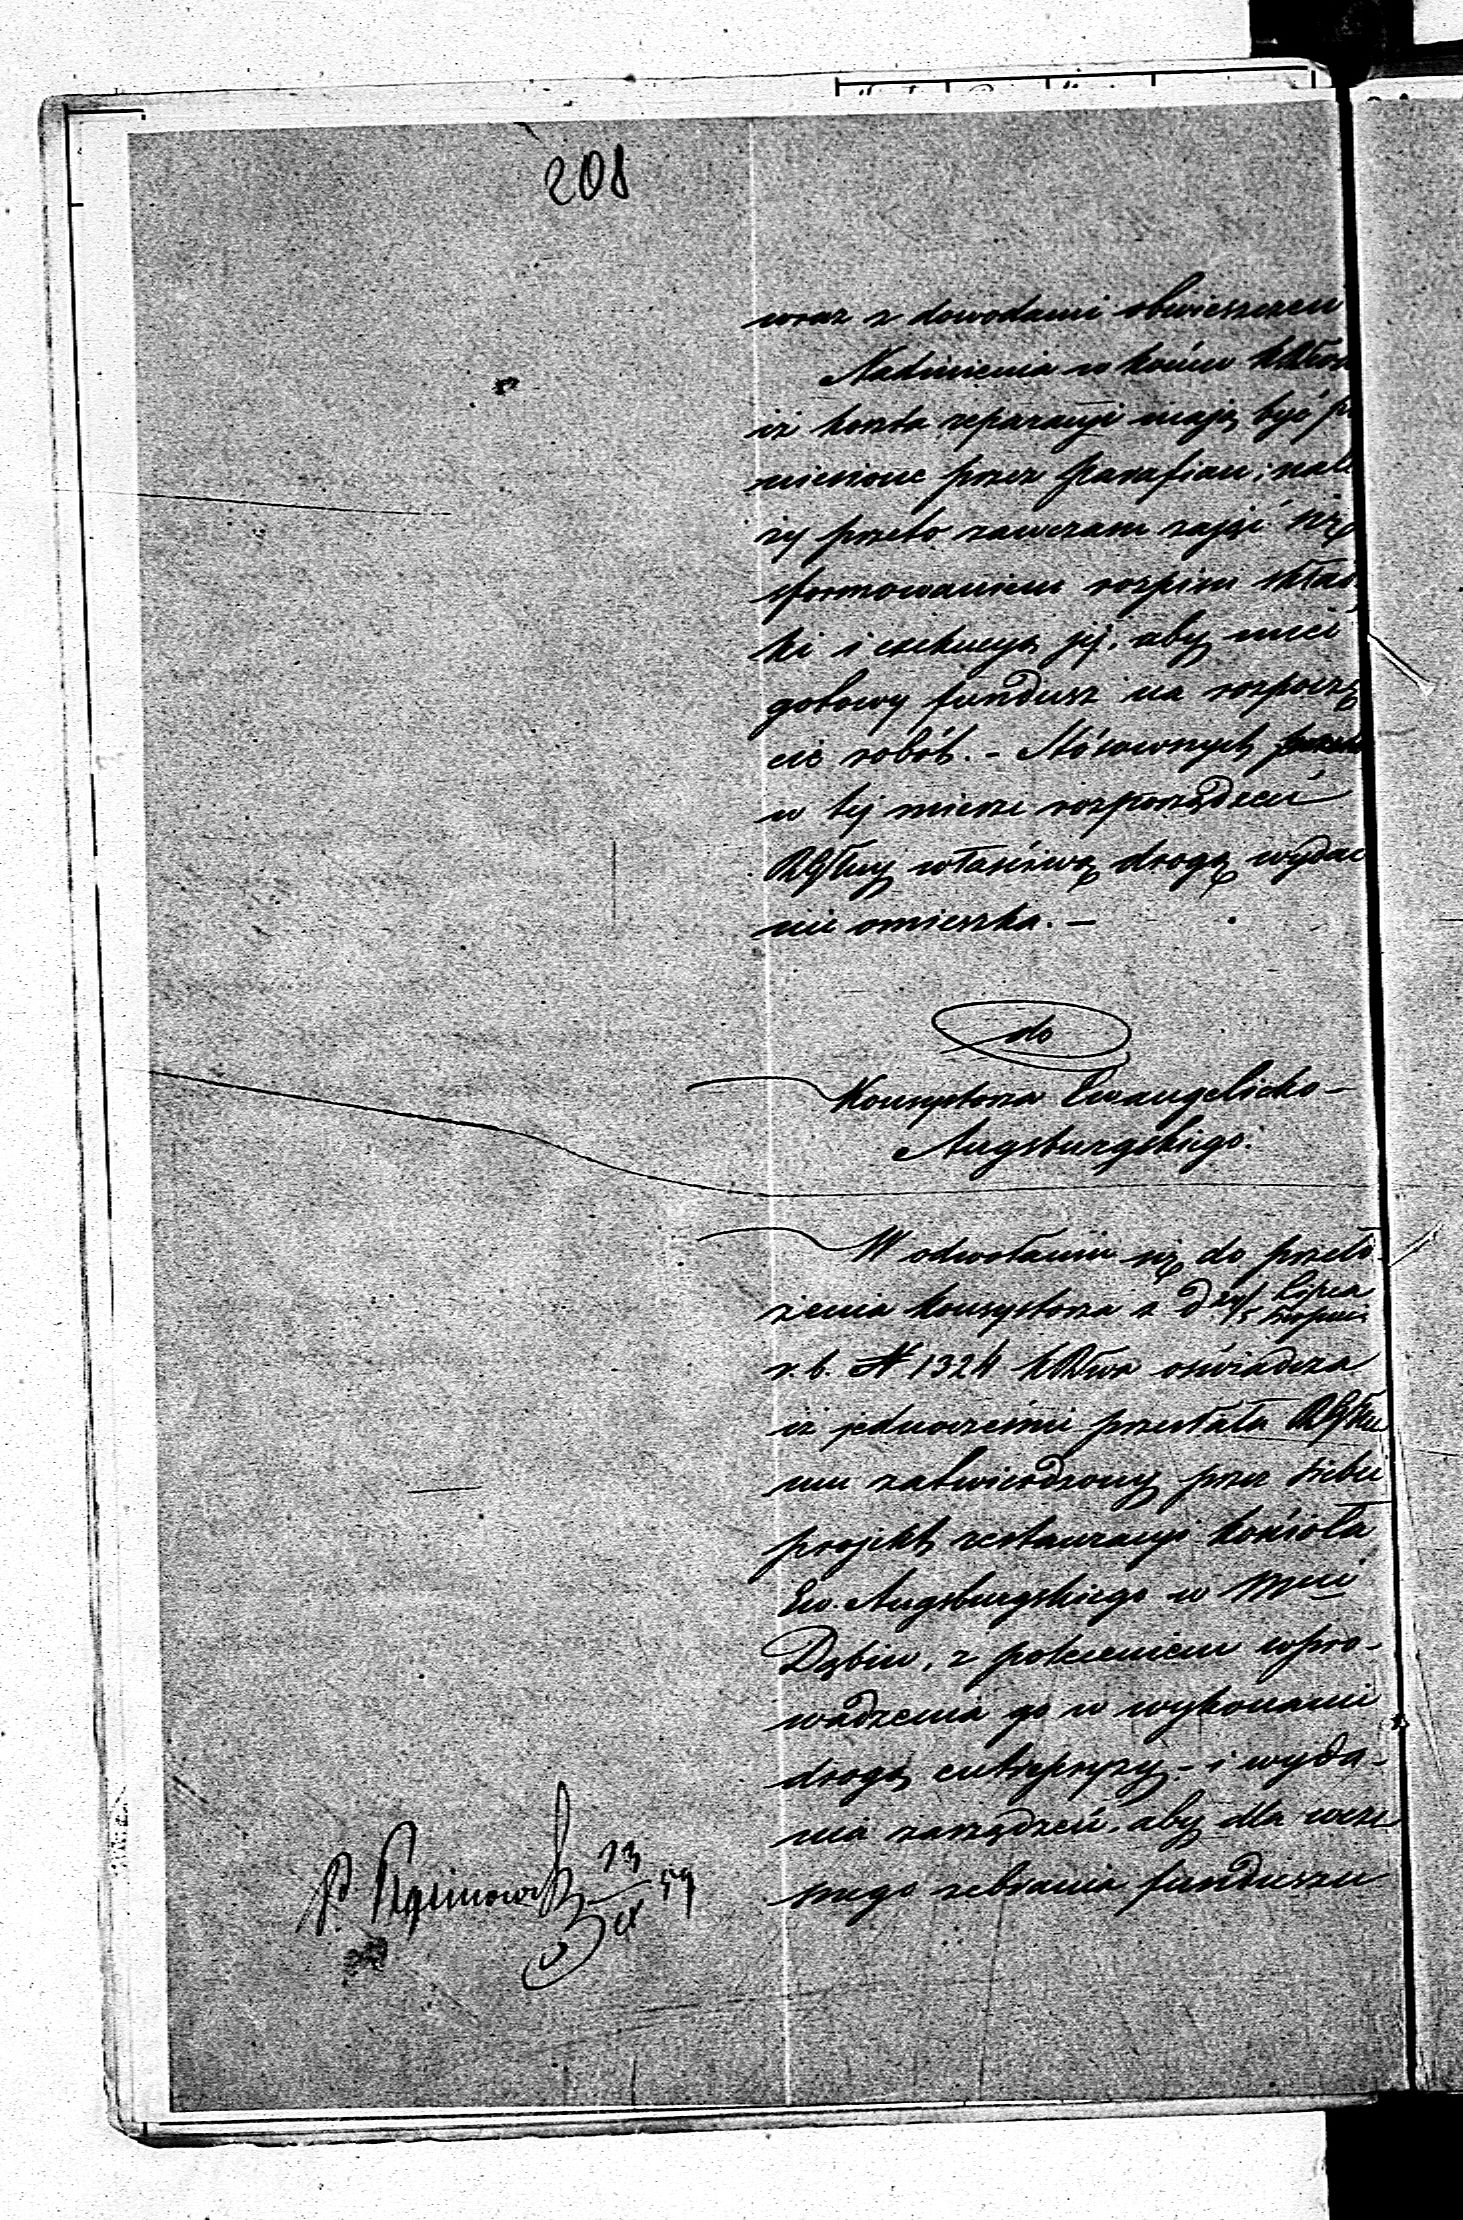 208
wraz z dowodami obwieszczeń
Nadmienia w końcu
iż koszta reparacyi mają być po
niesione przez Parafian; nale
ży przeto zawczasu zająć się
sformowaniem rozpisu skład
ki i exekucyą jéj, aby mieć
gotowy fundusz na rozpoczę
cie robót. – Stósownych
w téj mierze rozporządzeń
właściwą drogą wydać
nie omieszka. –
do
Konsystorza Ewangelicko-
Augsburgskiego.
W odwołaniu się do przeło-
żenia Konsystorza z d 24/5 Lipca Sierpnia
r. b. N 1324 oświadcza
iż jednocześnie przesłała
mu zatwierdzony przez siebie
projekt restauracyi Kościoła
Ew. Augsburgskiego w Mcie
Dąbiu, z poleceniem wpro-
wadzenia go w wykonanie
drogą entrepryzy – i wyda-
nia zarządzeń, aby dla wcze
snego zebrania funduszu
13/IX 59